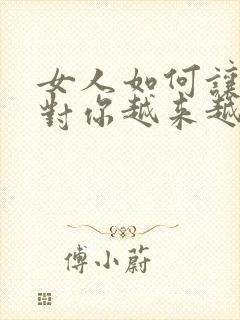 女人如何讓
對你越来越
傅小蔚